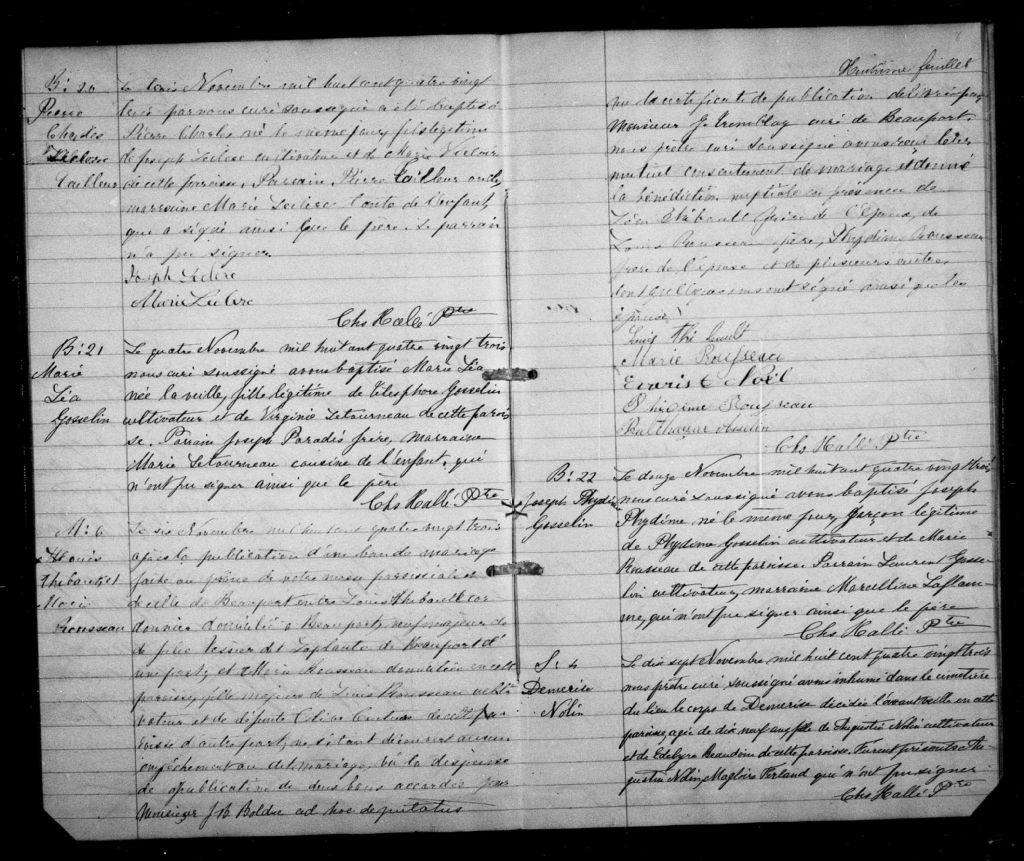 B: 20
Pierre
Charles
Leclerc
Tailleur
Le trois Novembre mil huit cent quatre vingt
trois par nous curé soussigné a été baptisé
Pierre Charles né le même jour, fils légitime
de Joseph Leclerc cultivateur et de Marie
de cette paroisse, Parrain, Pierre Tailleur
marraine Marie Leclerc tante de l'enfant,
qui a signé ainsi que le père. Le parrain
n'a pu signer
Joseph Leclerc
Marie Leclerc
Chs Hallé Ptre
B: 21
Marie
Léa
Gosselin
Le quatre Novembre mil huit cent quatre vingt trois
nous curé soussigné avons baptisé Marie Léa
née la veille, fille légitime de Télesphore Gosselin
cultivateur et de Virginie Letourneau de cette parois
se. Parrain Joseph Paradis frère, marraine
Marie Letourneau cousine de l'enfant, qui
n'ont pu signer ainsi que le père
Chs Hallé Ptre
M: 6
Louis
Thibault et
Marie
Rousseau
Le six Novembre mil huit cent quatre vingt trois
après la publication d'un ban de mariage
faite au prône de notre messe paroissiale et
de celle de Beauport entre Louis Thibault cor
donnier domicilié à Beauport, majeur de
de Beauport d'
une part; et Marie Rousseau domiciliée en cette
paroisse, fille majeure de Louis Rousseau culti
vateur et de défunte de cette pa
roisse d'autre part, ne s'étant découvert aucun
empêchement au dit mariage, vu la dispense
de publication de deux bans accordée par
Monsieur J. B. Bolduc ad hoc deputatus
Huitième feuillet
vu le certificat de publication délivré par
Monsieur G. Tremblay curé de Beauport,
nous prêtre curé soussigné avons reçu leur
mutuel consentement de mariage et donné
la bénédiction nuptiale en présence de
Thibault frère de l'époux, de
Louis Rousseau père, Phydime Rousseau
frère de l'épouse et de plusieurs autres
dont quelques uns ont signé ainsi que les
époux
Louis Thibault
Marie Rousseau
Evariste Noël
Phidime Rousseau
Balthazar
Chs Hallé Ptre
B: 22
Joseph Phydime
Gosselin
Le douze Novembre mil huit cent quatre vingt trois
nous curé soussigné avons baptisé Joseph
Phydime né le même jour, garçon légitime
de Phydime Gosselin cultivateur et de Marie
Rousseau de cette paroisse. Parrain Laurent Gosse
lin cultivateur, marraine Marcelline Laflam
me, qui n'ont pu signer ainsi que le père
Chs Hallé Ptre
S: 4
Demerise
Nolin
Le dix sept Novembre mil huit cent quatre vingt trois
nous prêtre curé soussigné avons inhumé dans le cimetière
du lieu le corps de Demerise décédée l'avant veille en cette
paroisse, agée de dix neuf ans, fille de Augustin Nolin cultivateur
et de Beaudoin de cette paroisse. Furent présents Au
gustin Nolin, Magloire Ferland qui n'ont pu signer
Chs Hallé Ptre